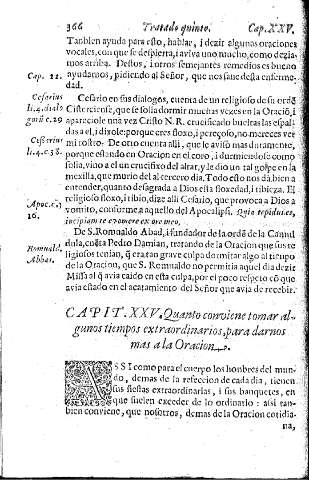 366 Tratado quinto. Cap. XXV.
Tanbien ayuda para esto, hablar, i dezir algunas oraciones
vocales, con que se despierta, i aviva uno mucho, como dezia-
mos arriba. Destos, i otros semejantes remedios es bueno
Cap. 22. ayudarnos, pidiendo al Señor, que nos sane desta enferme-
dad.
Cesarius Cesario en sus dialogos, cuenta de un religioso de su ordẽ
li. 4. dialo Cisterciense, que se solia dormir muchas vezes en la Oraciõ, i
gorũ c. 29 apareciole una vez Cristo N. R. crucificado bueltas las espal-
das a el, i dixole: porque eres floxo, i pereçoso, no mereces ver
Cesarius mi rostro. De otro cuenta alli, que le aviso mas duramente,
li. 4. c. 38. porque estando en Oracion en el coro, i durmiendose como
solia, vino a el un crucifixo del altar, y le dio un tal golpe en la
mexilla, que murio del al tercero dia. Todo esto nos dà bien a
entender, quanto desagrada a Dios esta floxedad, i tibieza. El
Apoc. c. 3 religioso floxo, i tibio, dize alli Cesario, que provoca a Dios a
16. vomito, conforme a aquello del Apocalipsi. Quia tepidus es,
incipiam te evomere ex ore meo.
Romuald. De S. Romualdo Abad, i fundador de la ordẽ de la Camul
Abbas. dula, cuẽta Pedro Damian, tratando de la Oracion que sus re
ligiosos tenian, q̃ era tan grave culpa dormitar algo al tiempo
de la Oracion, que S. Romualdo no permitia aquel dia dezir
Missa al q̃ avia caido en esta culpa, por el poco respeto cõ que
avia estado en el acatamiento del Señor que avia de recebir.
CAPIT. XXV. Quanto conviene tomar al-
gunos tiempos extraordinarios, para darnos
mas a la Oracion.
ASSI como para el cuerpo los honbres del mun-
do, demas de la refeccion de cada dia, tienen
sus fiestas extraordinarias, i sus banquetes, en
que suelen exceder de lo ordinario: assi tan-
bien conviene, que nosotros, demas de la Oracion cotidia-
na,